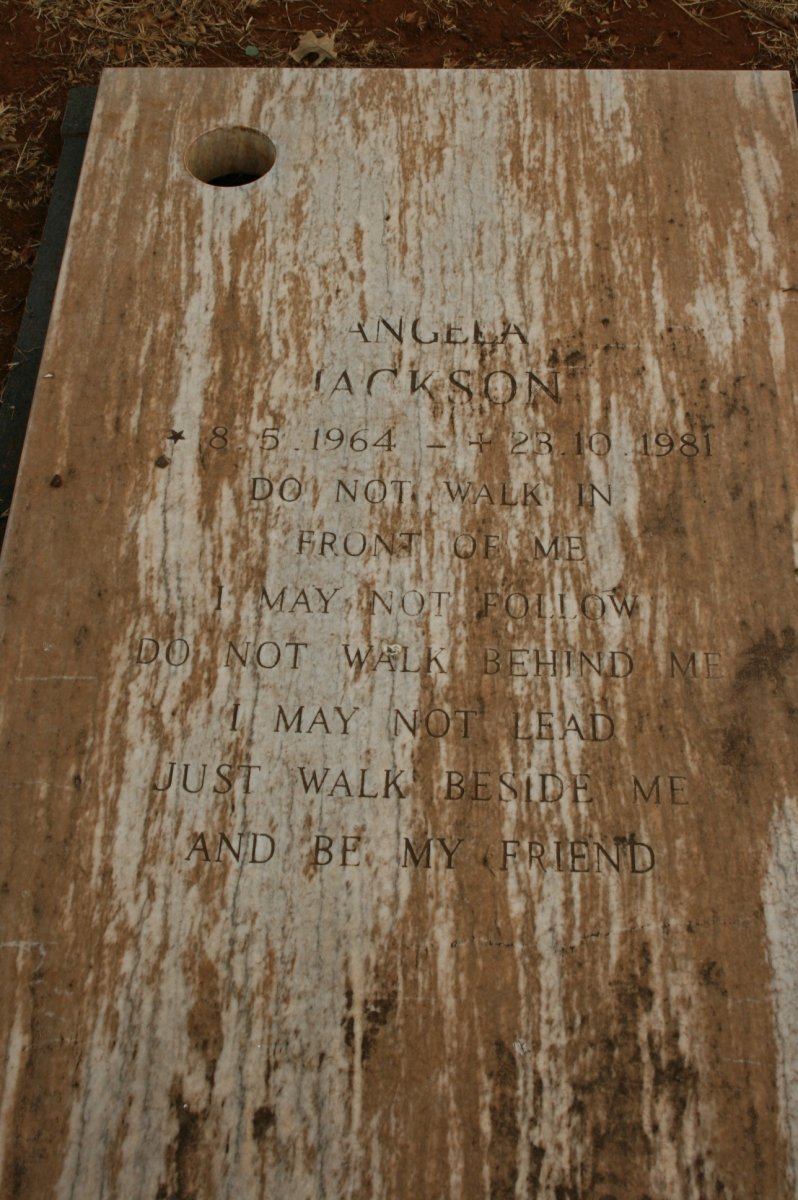 ANGELA
JACKSON
* 8.5.1964 – + 23.10.1981
DO NOT WALK IN
FRONT OF ME
I MAY NOT FOLLOW
DO NOT WALK BEHIND ME
I MAY NOT LEAD
JUST WALK BESIDE ME
AND BE MY FRIEND